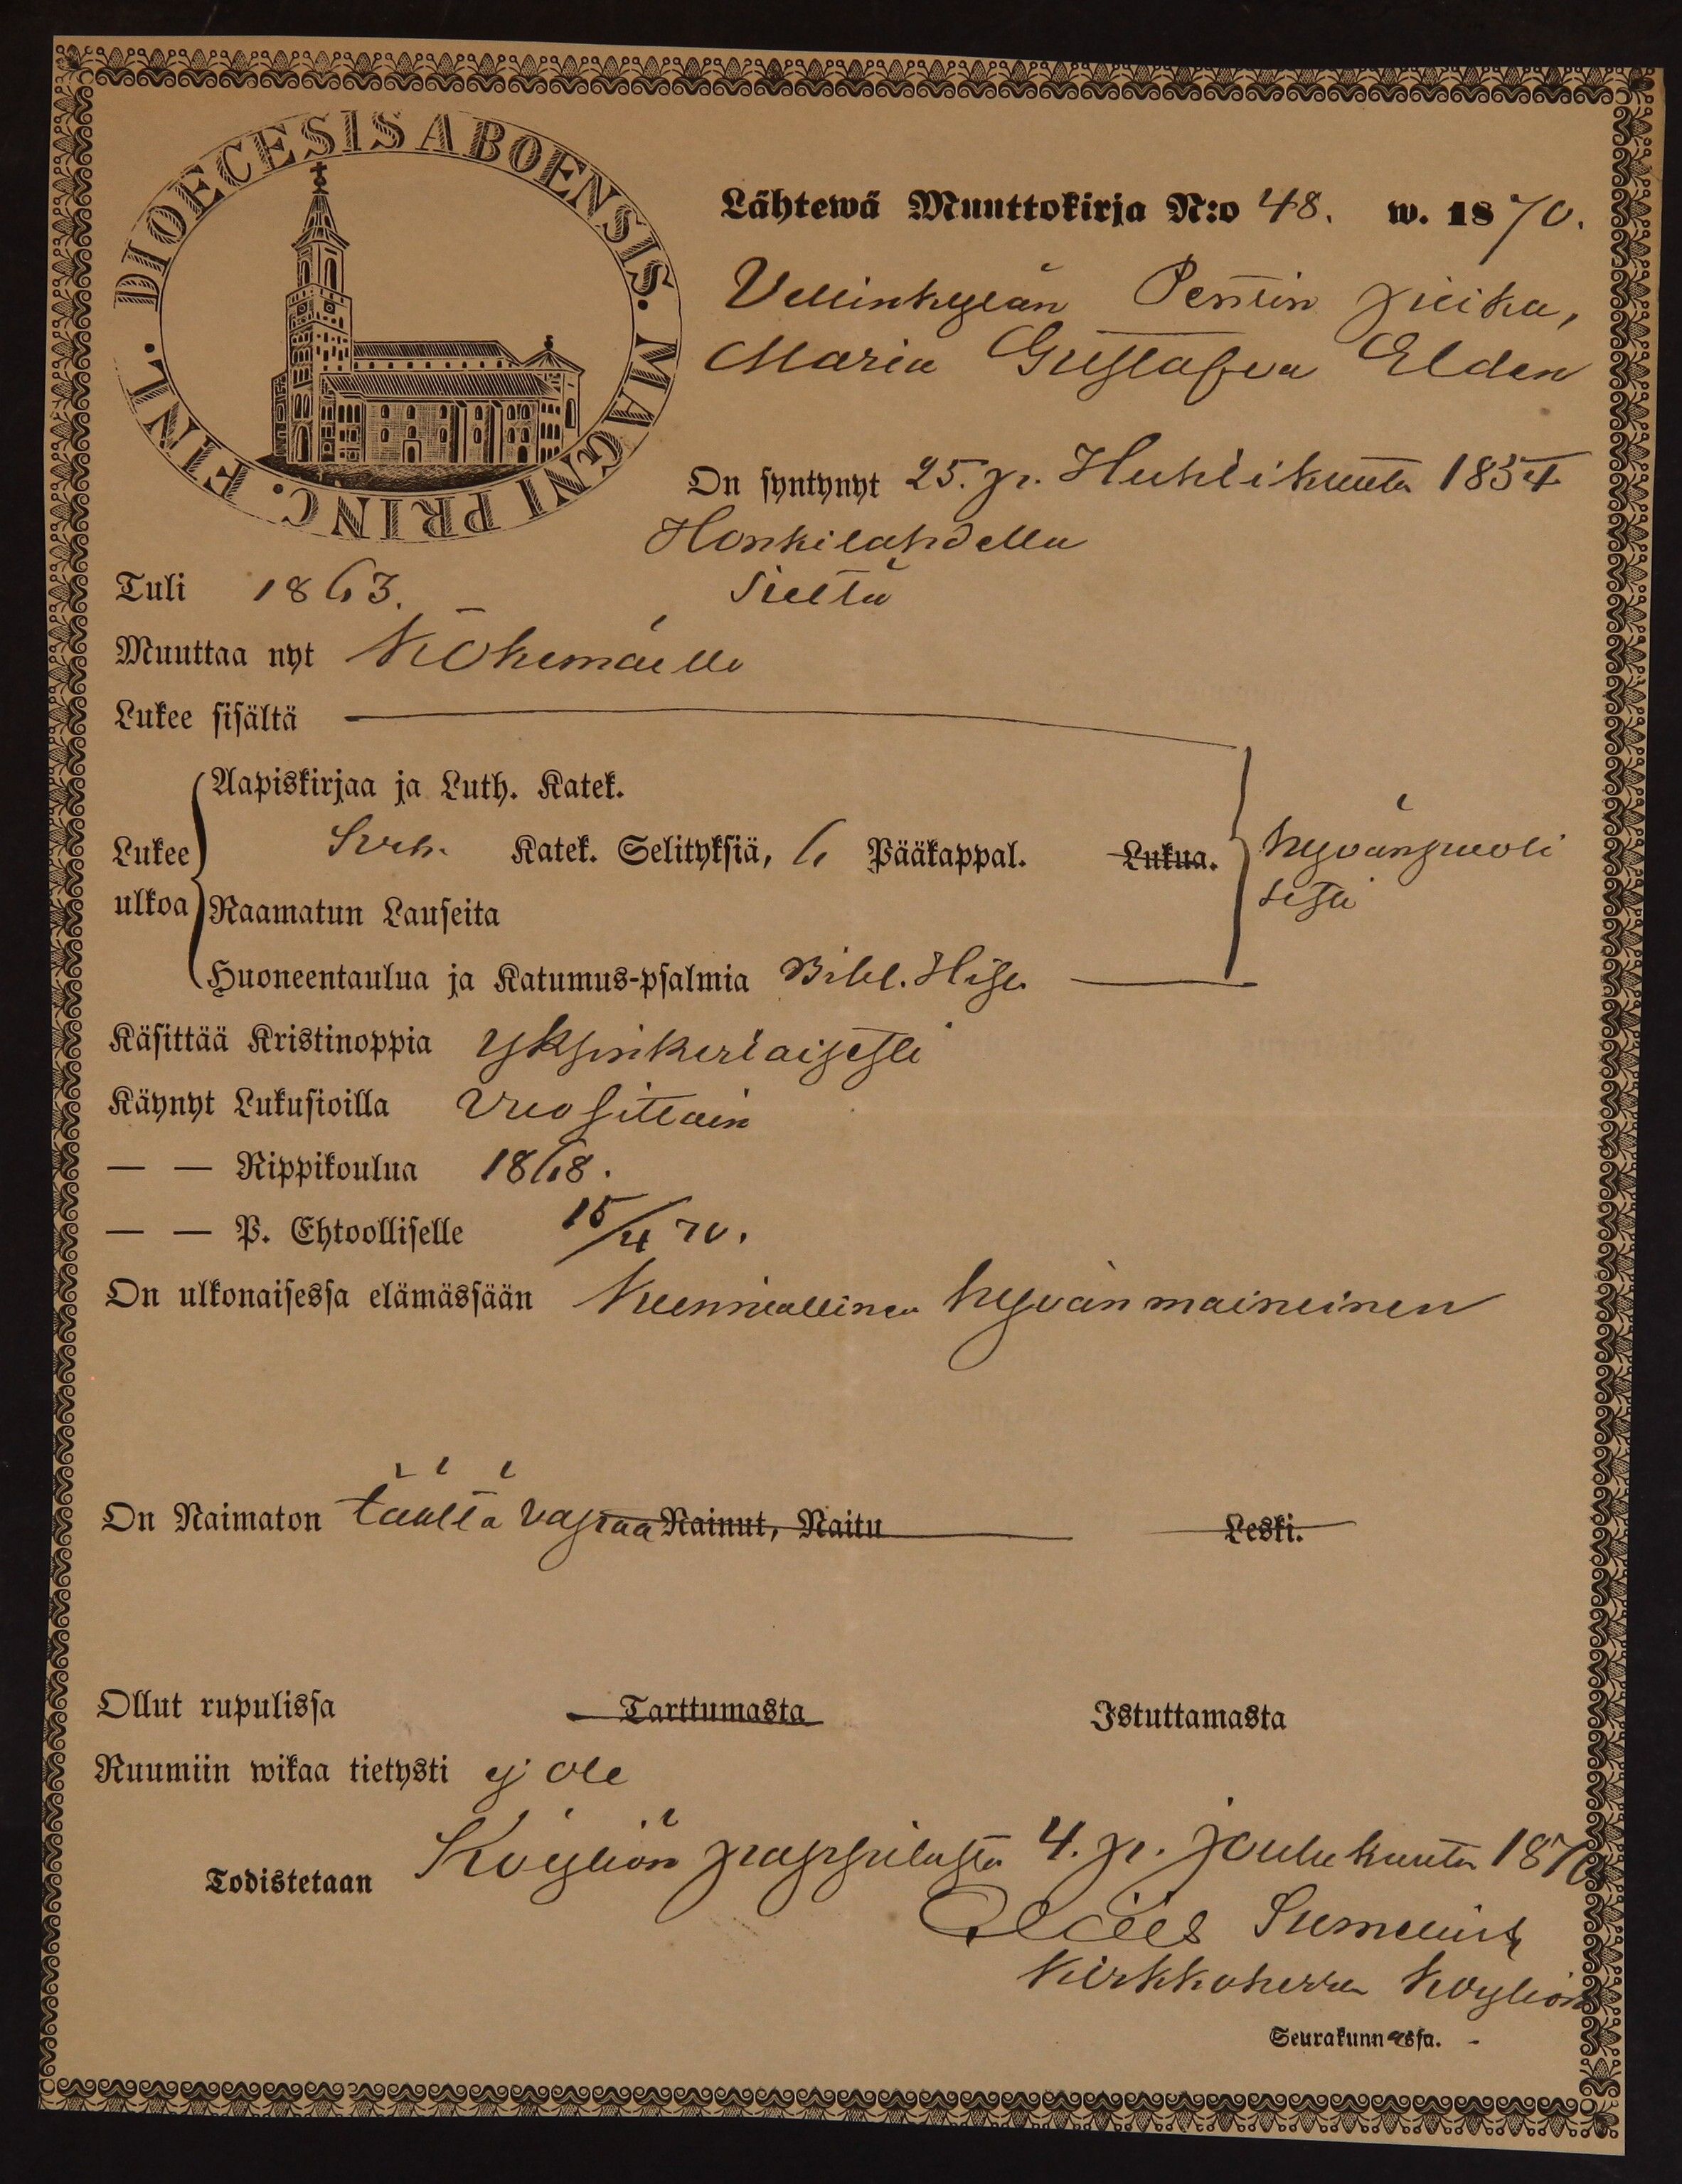 DIOECESIS ABOENSIS. MAGNI PRINC. FINL.
Lähtewä Muuttokirja N:o 48. w. 1870.
Vellinkylän Pentin piika,
Maria Gustafva Elden
On syntynyt 25. p. Huhtikuuta 1854
Honkilahdella
Tuli 1863. Sieltä
Muuttaa nyt Kokemäelle
Lukee sisältä
Aapiskirjaa ja Luth. Katek.
Lukee Sveb. Katek. Selityksiä, 6 Pääkappal. Lukua. hyvänpuoli
ulkoa Raamatun Lauseita sesti
Huoneentaulua ja Katumus-psalmia Bibl. Hist.
Käsittää Kristinoppia yksinkertaisesti
Käynyt Lukusioilla vuosittain
— — Rippikoulua 1868.
— — P. Ehtoolliselle 15/4 70.
On ulkonaisessa elämässään kunniallinen hyvänmaineinen
On Naimaton täältä vastaa Nainut, Naitu Leski.
Ollut rupulissa Tarttumasta Istuttamasta
Ruumiin wikaa tietysti ej ole
Todistetaan Köyliön pappilasta 4. p. joulukuuta 1870
Sumelius
Kirkkoherra Köyliön
Seurakunnassa.